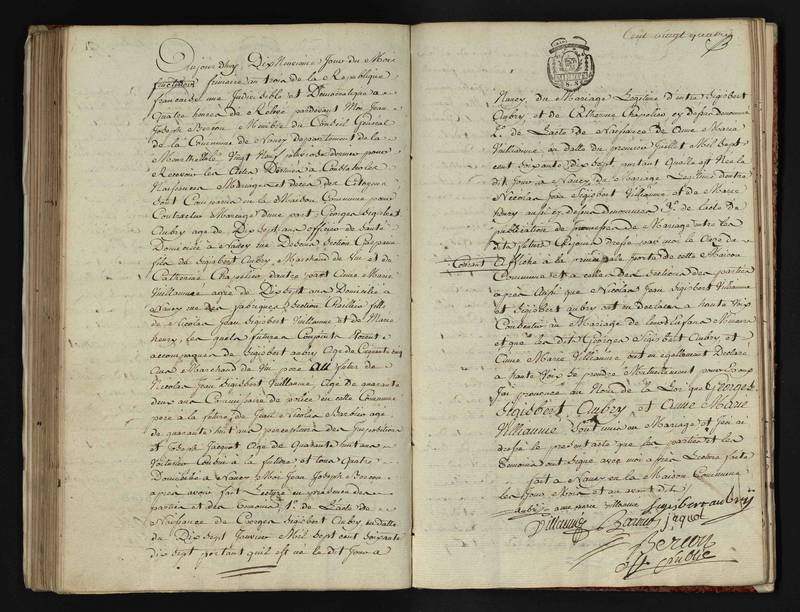 Aujourd'huy Dix Neuvieme Jour du Mois
frimaire an trois de la Republique
francaise une Indivisible et Democratique a
quatre heures de Relevé pardevant Moi Jean
Joseph Bereon Membre du Conseil General
de la Commune de Nancy Departement de la
Meurthe Elû Vingt Neuf dernier pour
Recevoir les Actes Destinés a Constater les
Naissances Mariages et deces des Citoyens
Sont Comparus en la Maison Commune pour
Contracter Mariage d'une part Georges Sigisbert
Aubry age de Dix Sept ans officier de Santé
Domicilié a Nancy rue Section
fils de Sigisbert Aubry Marchand de Vin et de
Catherine Chapelier d'autre part Anne Marie
Vuillaume agée de Dix Sept ans Domiciliée a
Nancy rue des fabriques Section fille
de Nicolas Jean Sigisbert Vuillaume et de Marie
henry, les quels futurs Conjoints etoient
accompagnés de Sigisbert aubry Age de Cinquante cinq
ans Marchand de Vin pere au futur de
Nicolas Jean Sigisbert Vuillaume Age de quarante
deux ans Commissaire de police en cette Commune
pere a la future de Jean Nicolas age
de quarante huit ans percepteur des Impositions
et Joseph Jacquot Age de Quarante huit ans
Cousin à la future et tous quatre
Domiciliés à Nancy Moi Jean Joseph Bereon
apres avoir fait Lecture en presence des
parties et des temoins, 1.° de L'acte de
Naissance de Georges Sigisbert Aubry en datte
du Dix Sept Janvier Mil Sept cent soixante
dix sept portant quil est né le dit Jour a
Cent vingt quatre
Nancy du Mariage Legitime d'entre Sigisbert
Aubry et de Catherine Chapelier cy dessus denommés
2.° de L'acte de Naissance de Anne Marie
Vuillaume en datte du premier Juillet Mil Sept
cent soixante Dix Sept portant quelle est Née le
dit Jour a Nancy du Mariage Legitime d'entre
Nicolas Jean Sigisbert Vuillaume et de Marie
henry aussi cy dessus denommés 3.° de L'acte de
publication de promesses de Mariage entre les
dits futurs Conjoints dressé par moi le Onze de
Courant
affiché à la porte de cette Maison
Commune et a celles des Sections des parties
apres Aussi que Nicolas Jean Sigisbert Vuillaume
et Sigisbert aubry ont declaré a haute Voix
Consentir au Mariage de leurs Enfans Mineurs
et que les dits Georges Sigisbert Aubry et
Anne Marie Villaume ont egallement Declaré
a haute Voix Se prendre Mutuellement pour Epoux
J'ai prononcé au Nom de la Loi que Georges
Sigisbert Aubry et Anne Marie
Villaume Sont unis en Mariage et J'en ai
dressé le present acte que les parties et les
temoins ont Signé avec moi apres Lecture faite
fait a Nancy en la Maison Commune
les Jour Mois et an avant dits
aubry anne marie villaume Sigisbert aubry
Villaume jaquot
Bereon
off. public